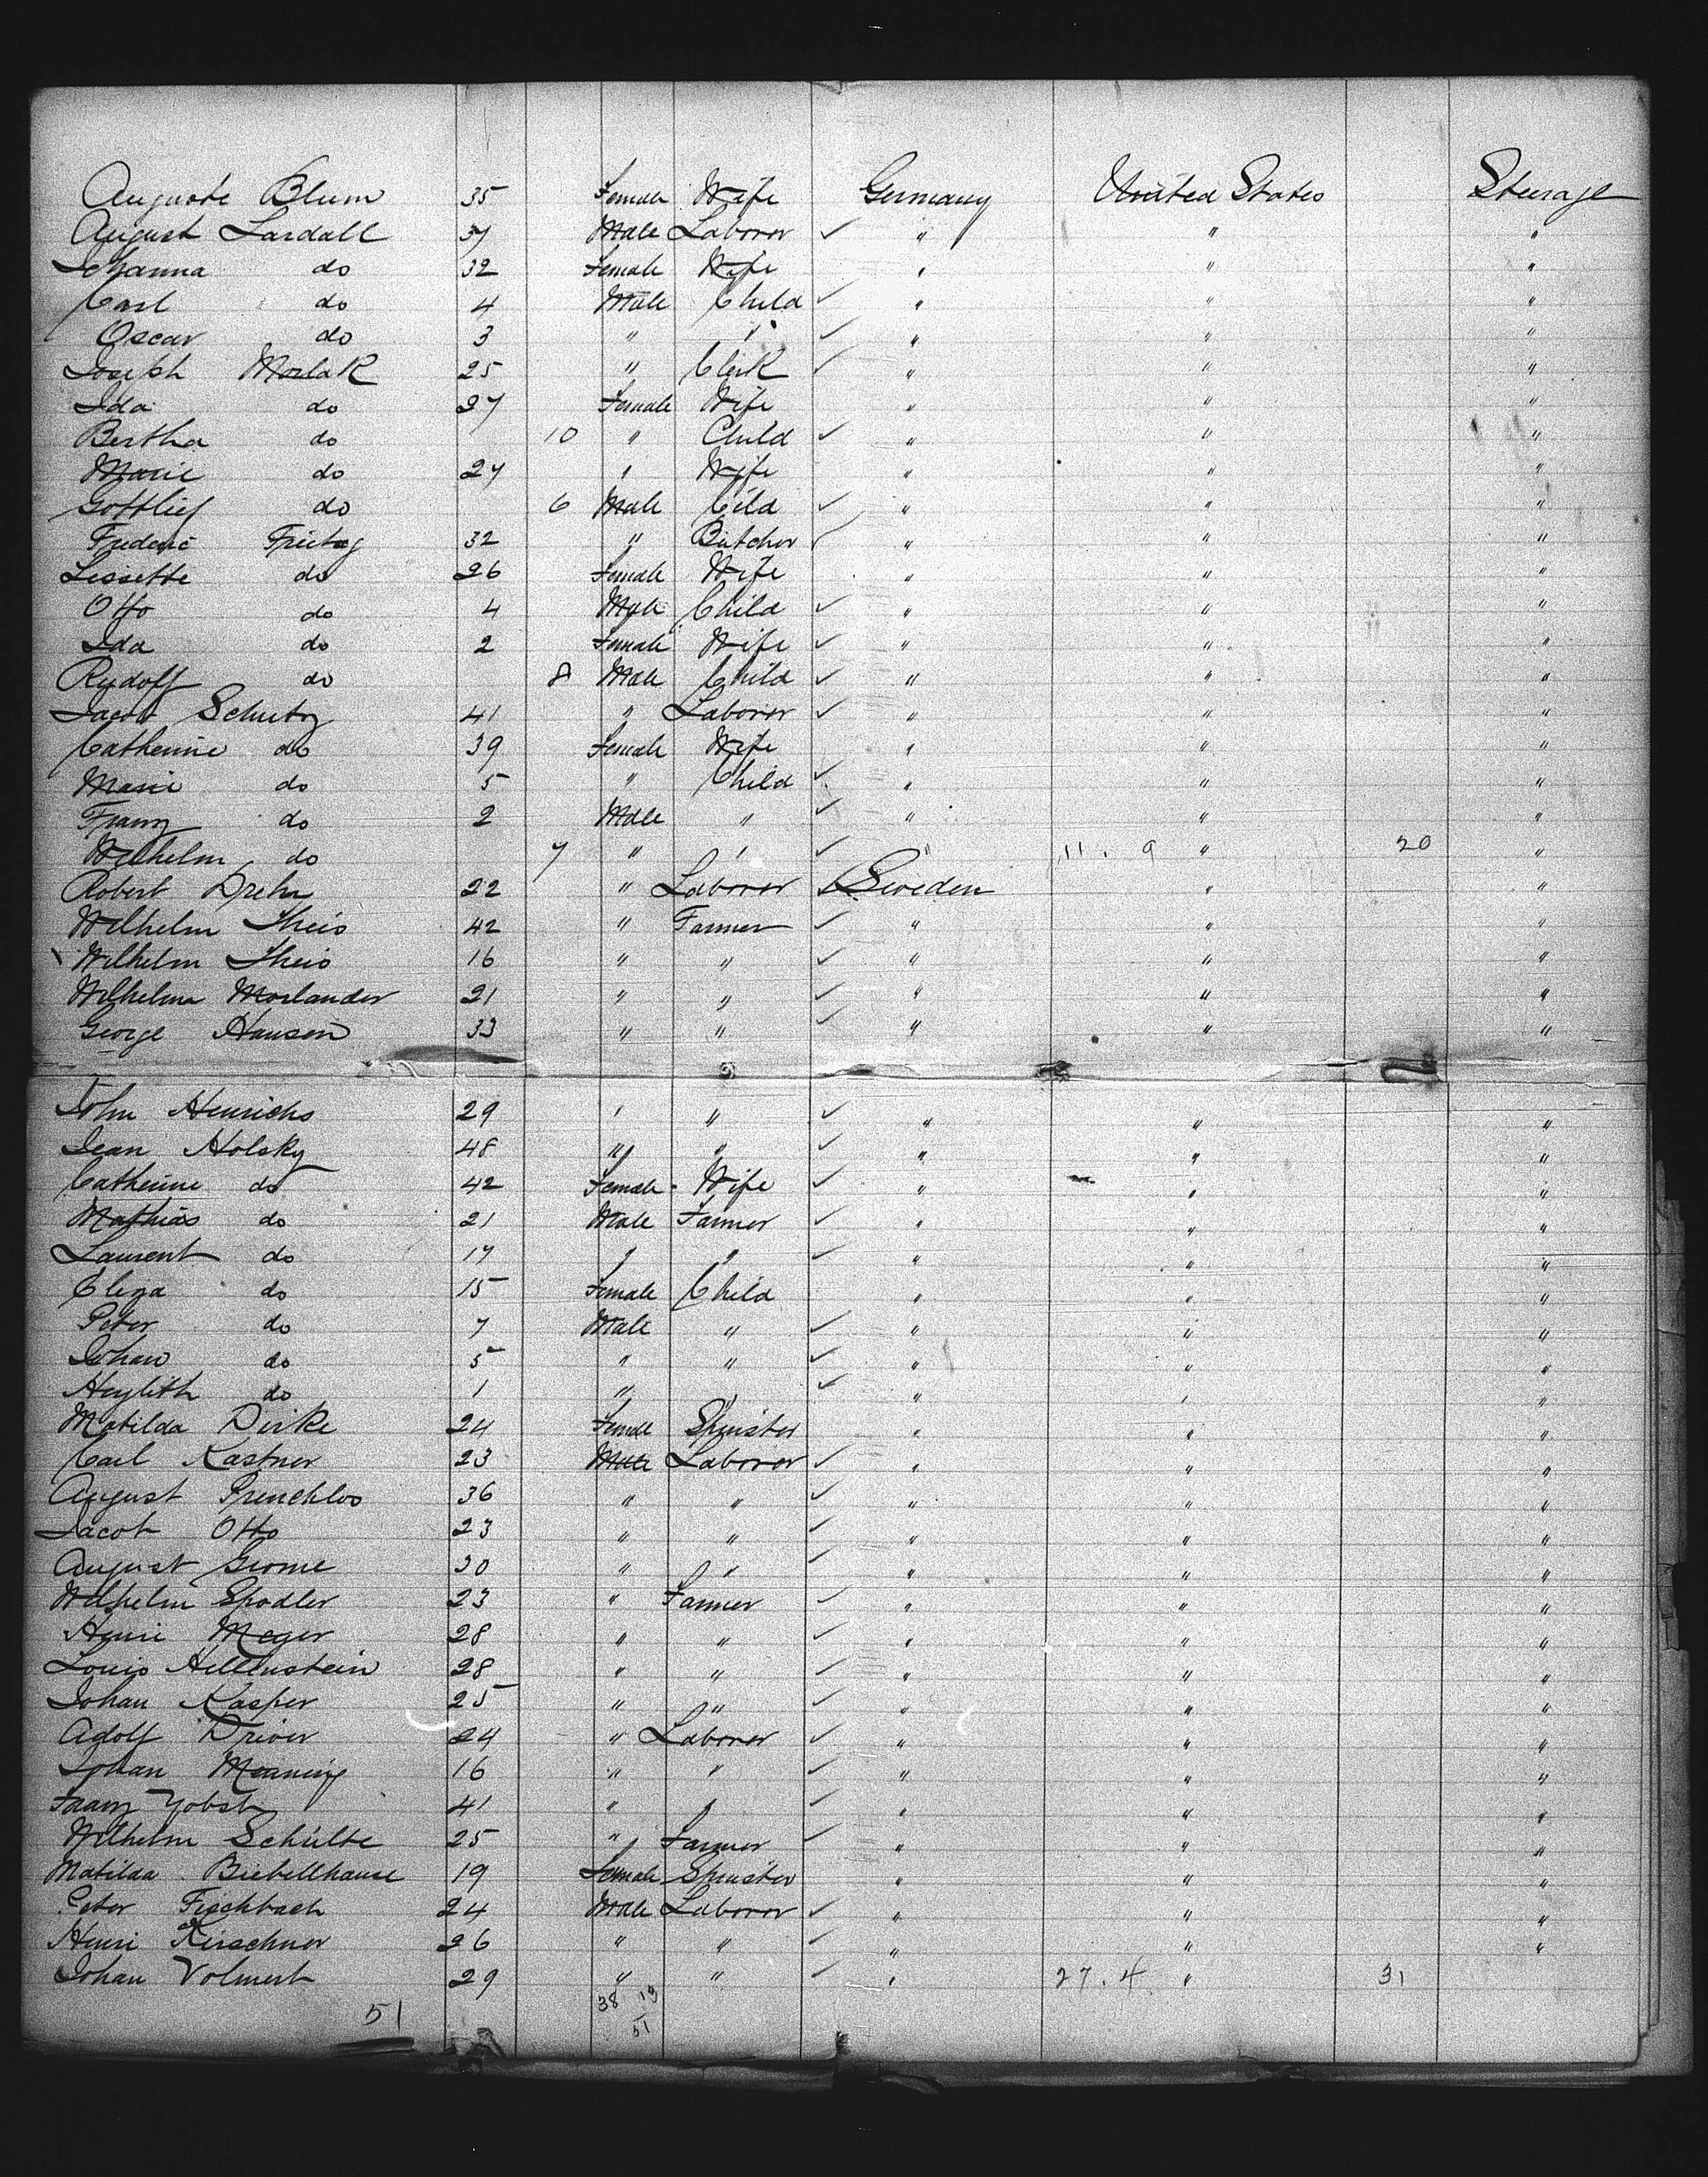 Auguste Blum 35 Female Wife Germany United States Steerage
August Lardall 37 Male Laborer ✓ " " "
Johanna do 32 Female Wife " " "
Carl do 4 Male Child ✓ " " "
Oscar do 3 " " ✓ " " "
Joseph Morlak 25 " Clerk ✓ " " "
Ida do 27 Female Wife " " "
Bertha do 10 " Child ✓ " " "
Marie do 27 " Wife " " "
Gottlief do 6 Male Cild ✓ " " "
Frederic Freitag 32 " Butcher ✓ " " "
Lissette do 26 Female Wife " " "
Otto do 4 Male Child ✓ " " "
Ida do 2 Female Wife ✓ " " "
Rudolf do 8 Male Child ✓ " " "
Jacob Schutz 41 " Laborer ✓ " " "
Catherine do 39 Female Wife " " "
Marie do 5 " Child ✓ " " "
Franz do 2 Male " ✓ " " "
Wilhelm do 7 " " ✓ " 11. 9 " 20 "
Robert Drehn 22 " Laborer ✓ Sweden " "
Wilhelm Theis 42 " Farmer ✓ " " "
Wilhelm Theis 16 " " ✓ " " "
Wilhelm Morlander 21 " " ✓ " " "
George Hansen 33 " " ✓ " " "
John Henrichs 29 " " ✓ " " "
Jean Holsky 48 " " ✓ " " "
Catherine do 42 Female Wife ✓ " " "
Mathias do 21 Male Farmer ✓ " " "
Laurent do 17 " " ✓ " " "
Eliza do 15 Female Child " " "
Peter do 7 Male " ✓ " " "
Johan do 5 " " ✓ " " "
do 1 " " ✓ " " "
Matilda Dirke 24 Female Spinster " " "
Carl Kastner 23 Male Laborer ✓ " " "
August 36 " " ✓ " " "
Jacob Otto 23 " " ✓ " " "
August Grome 30 " " ✓ " " "
Wilhelm Spodler 23 " Farmer ✓ " " "
Henri Meger 28 " " ✓ " " "
Louis Hellenstein 28 " " ✓ " " "
Johan Kasper 25 " " ✓ " " "
Adolf Driver 24 " Laborer ✓ " " "
Johan Meaning 16 " " ✓ " " "
Franz Yobst 41 " " ✓ " " "
Wilhelm Schulte 25 " Farmer ✓ " " "
Matilda Biebellhause 19 Female Spinster " " "
Peter Fischbach 24 Male Laborer ✓ " " "
Henri Kerschner 26 " " ✓ " " "
Johan Volmert 29 " " ✓ " 27. 4 " 31
51 38 13
51